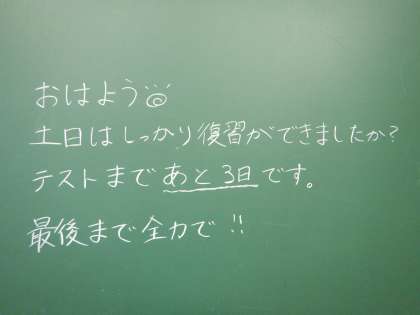 おはよう
土日はしっかり復習ができましたか?
テストまであと3日です。
最後まで全力で!!